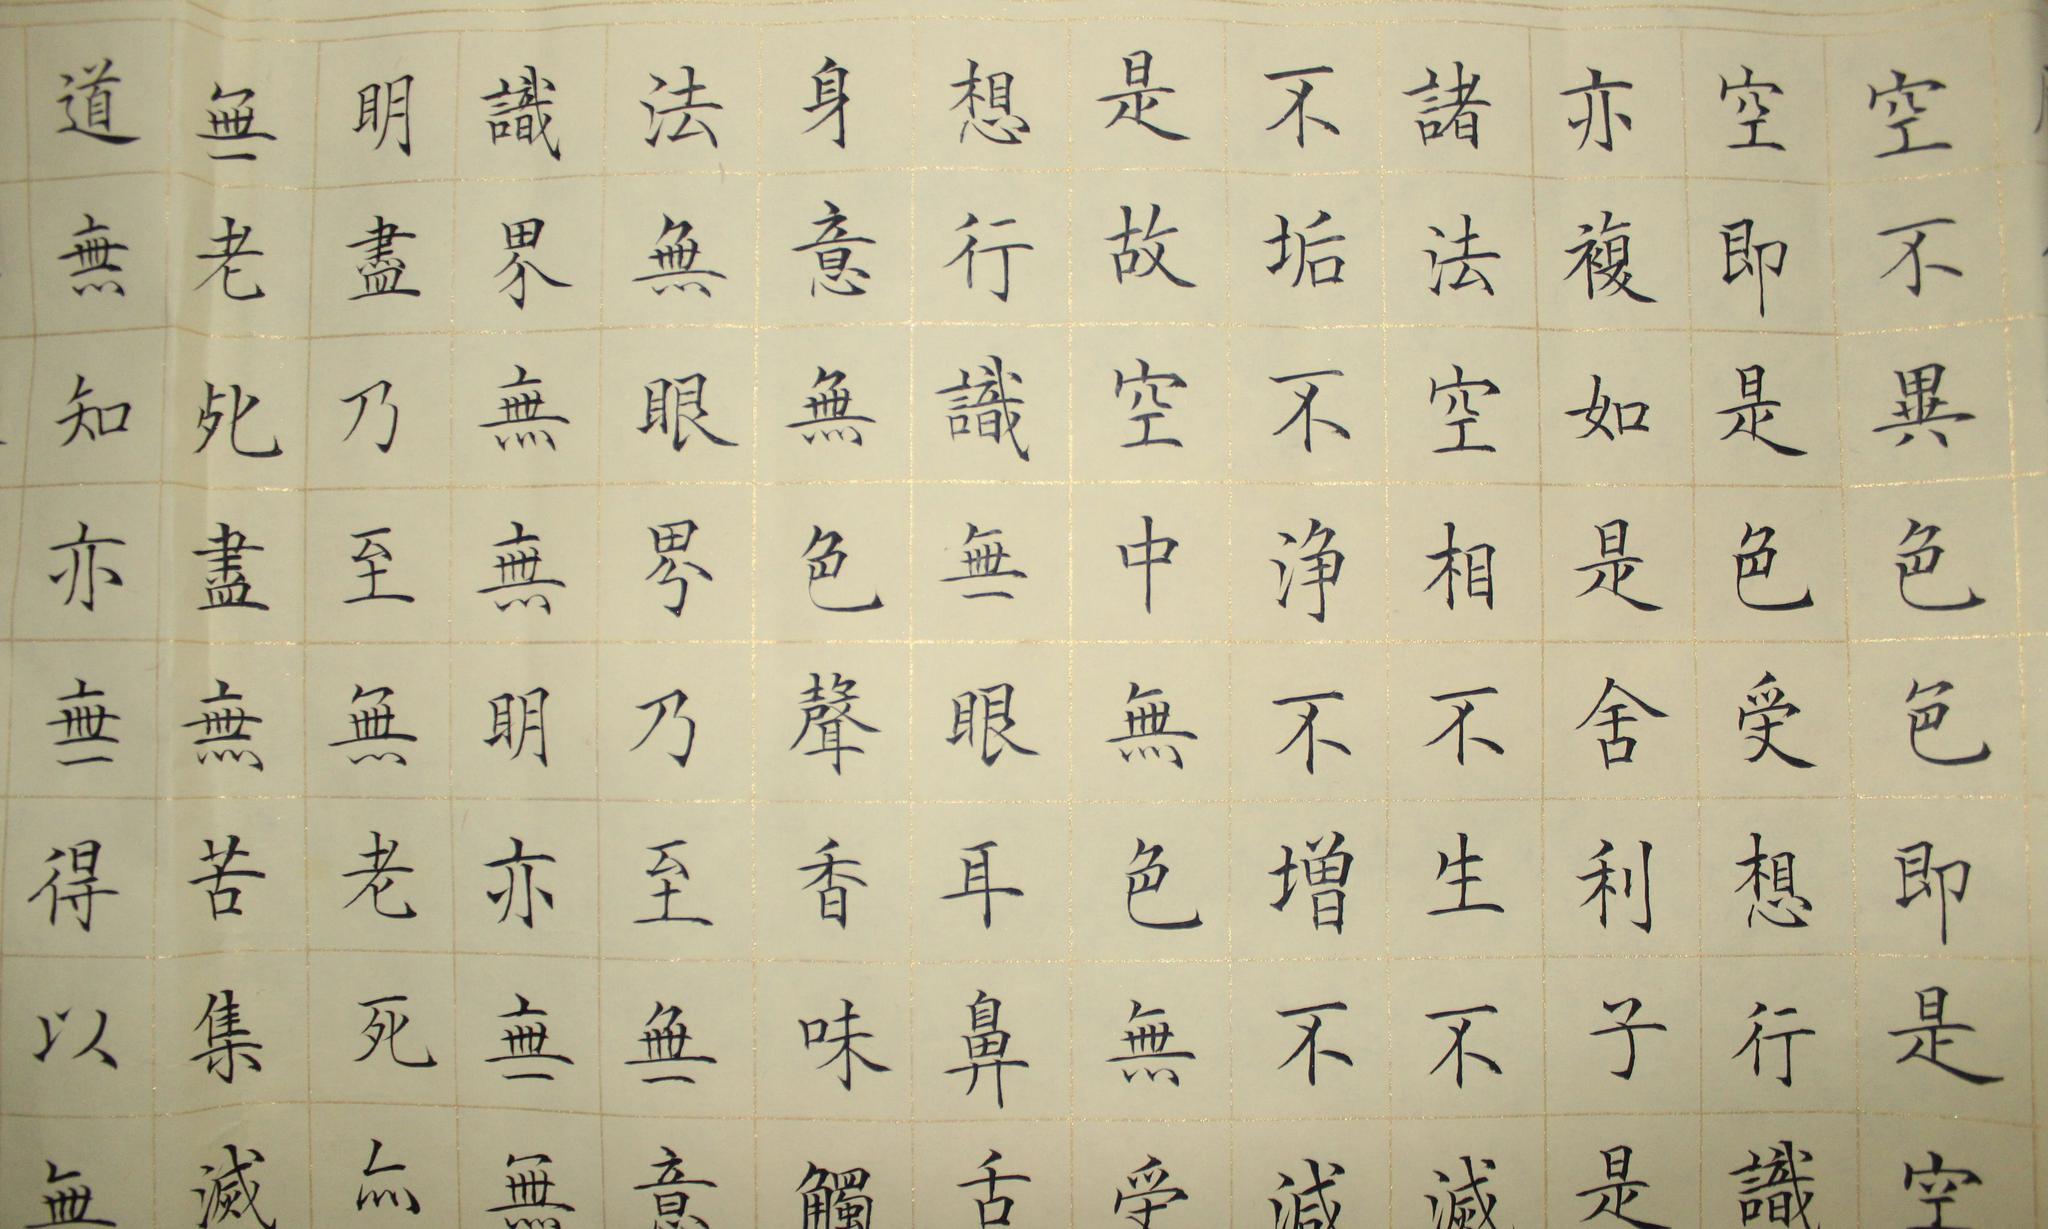 空不異色色即是空
空即是色受想行識
亦複如是舍利子是
諸法空相不生不滅
不垢不淨不增不減
是故空中無色無受
想行識無眼耳鼻舌
身意無色聲香味觸
法無眼界乃至無意
識界無無明亦無無
明盡乃至無老死亦
無老死盡無苦集滅
道無知亦無得以無